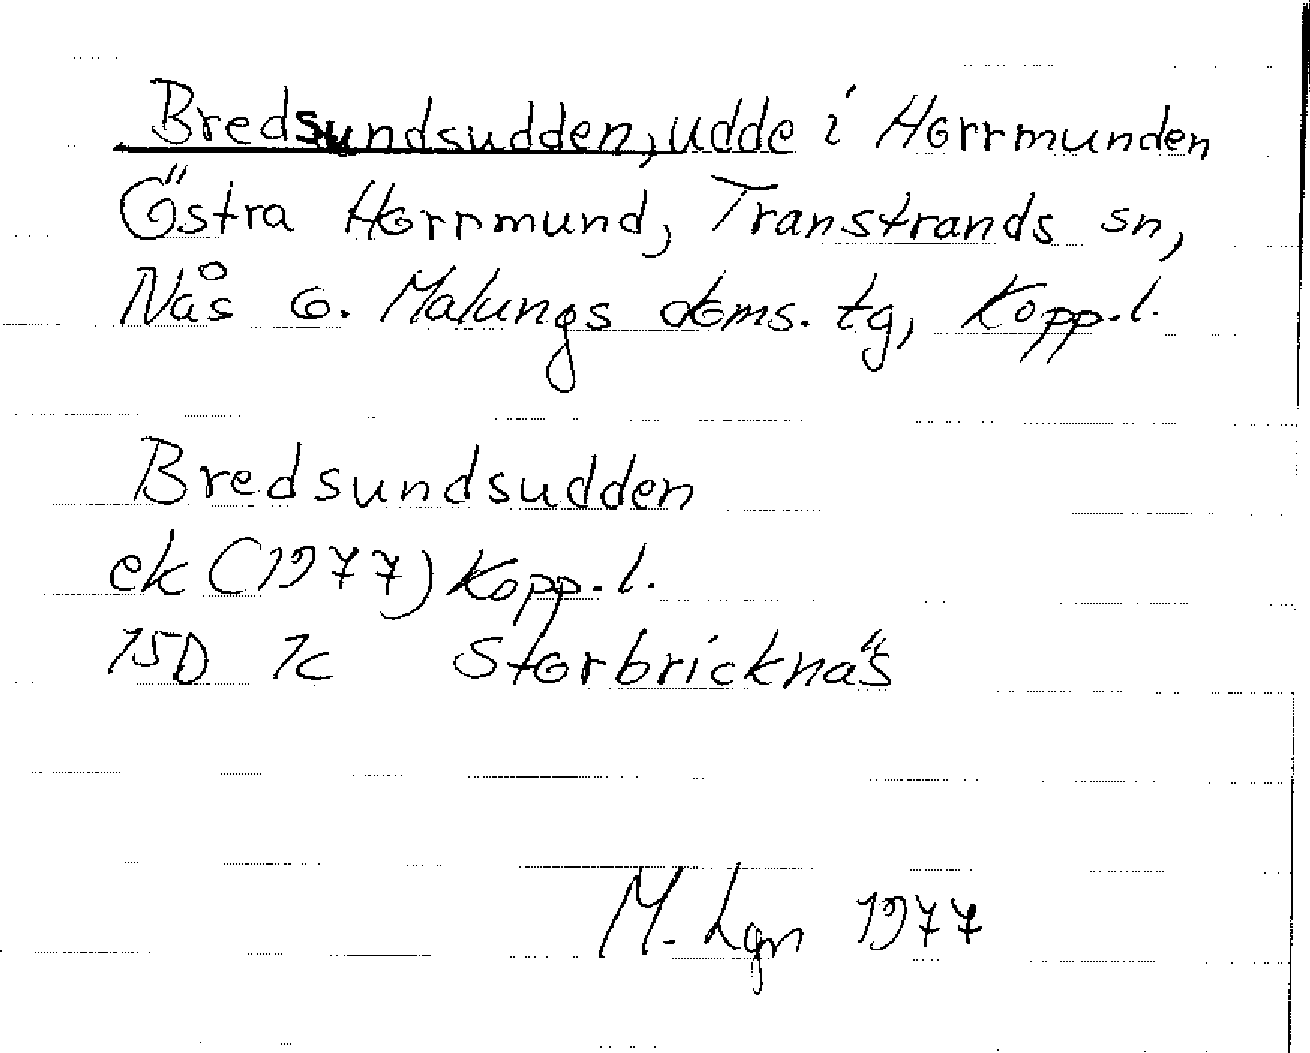 Bredsundsudden, udde i Horrmunden
Östra Horrmund, Transtrands sn,
Nås o. Malungs doms. tg, Kopp. l.
Bredsundsudden
ek (1977) Kopp. l.
15D 7c Storbricknäs
M. Lgn 1977